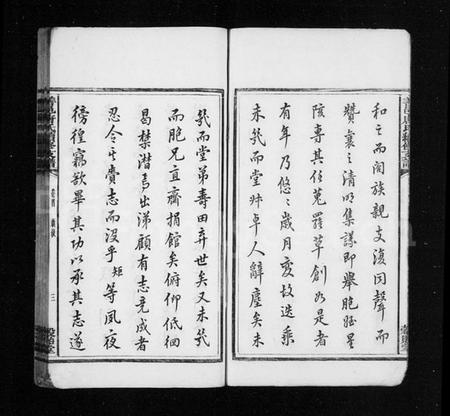 和之而闔族親支復同聲而
贊襄之清明集議即舉胞姪星
陔專其任蒐羅草創如是者
有年乃悠悠歲月變故迭乘
未幾而堂卓人辭塵矣未
幾而堂弟壽田弃世矣又未幾
而胞兄宜齋捐館矣俯仰低徊
曷禁潸焉出涕顧有志竟成者
忍令其賫志而沒乎矩等夙夜
徬徨竊欲畢其功以承其志遂
卷首
三